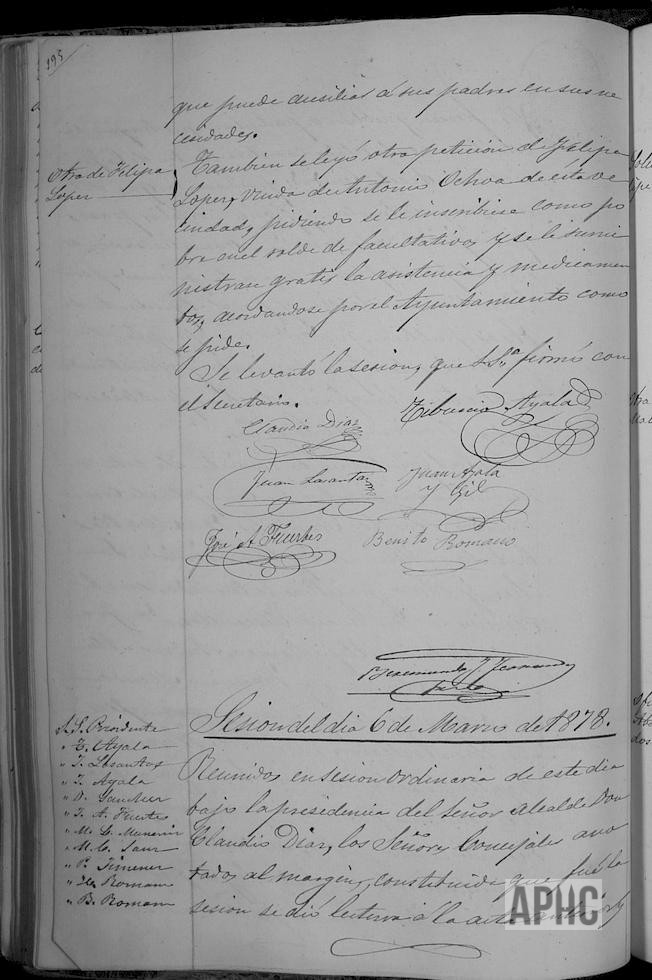 195
que puede ausiliar á sus padres en sus ne
cesidades.
Otra de Felipa
Lopez
Tambien se leyó otra peticion de Felipa
Lopez, viuda de Antonio Ochoa de esta ve
cindad, pidiendo se le inscribiese como po
bre en el rolde de facultativos y se le sumi
nistrase gratis la asistencia y medicamen
tos, acordandose por el Ayuntamiento como
se pide.
Se levantó la sesion, que S.Sª firmó con
el Secretario.
Claudio Diaz
Tiburcio Ayala
Juan Losantos
Juan Ayala
y Gil
José A Fuertes
Benito Romano
Sesion del dia 6 de Marzo de 1878.
S. S. Presidente
" T. Ayala
" J. Losantos
" J. Ayala
" Sanchez
" J. A. Fuertes
" M. C.
" M. C. Sanz
" P. Jimenez
" Romano
" B. Romano
Reunidos en sesion ordinaria de este dia
bajo la presidencia del Señor Alcalde Don
Claudio Diaz, los Señores Concejales ano
tados al margen, constituida que fué la
sesion se dió lectura á la acta anterior y
APHC